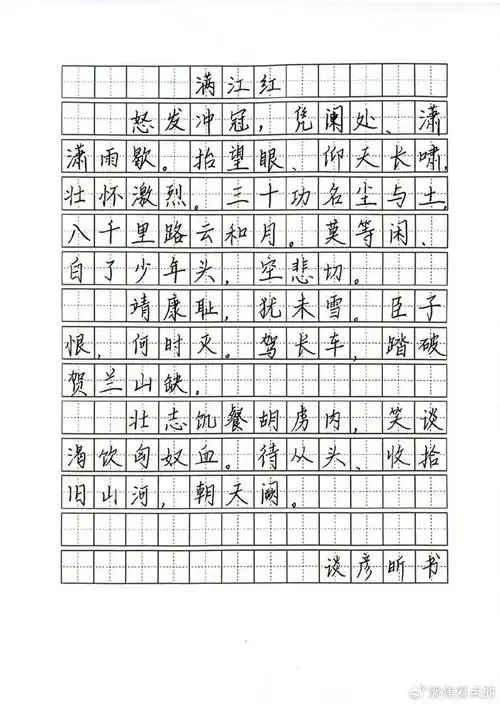 满江红
怒发冲冠，凭阑处、潇
潇雨歇。抬望眼、仰天长啸，
壮怀激烈。三十功名尘与土，
八千里路云和月。莫等闲、
白了少年头，空悲切。
靖康耻，犹未雪。臣子
恨，何时灭。驾长车，踏破
贺兰山缺。
壮志饥餐胡虏肉，笑谈
渴饮匈奴血。待从头、收拾
旧山河，朝天阙。
谈彦昕书